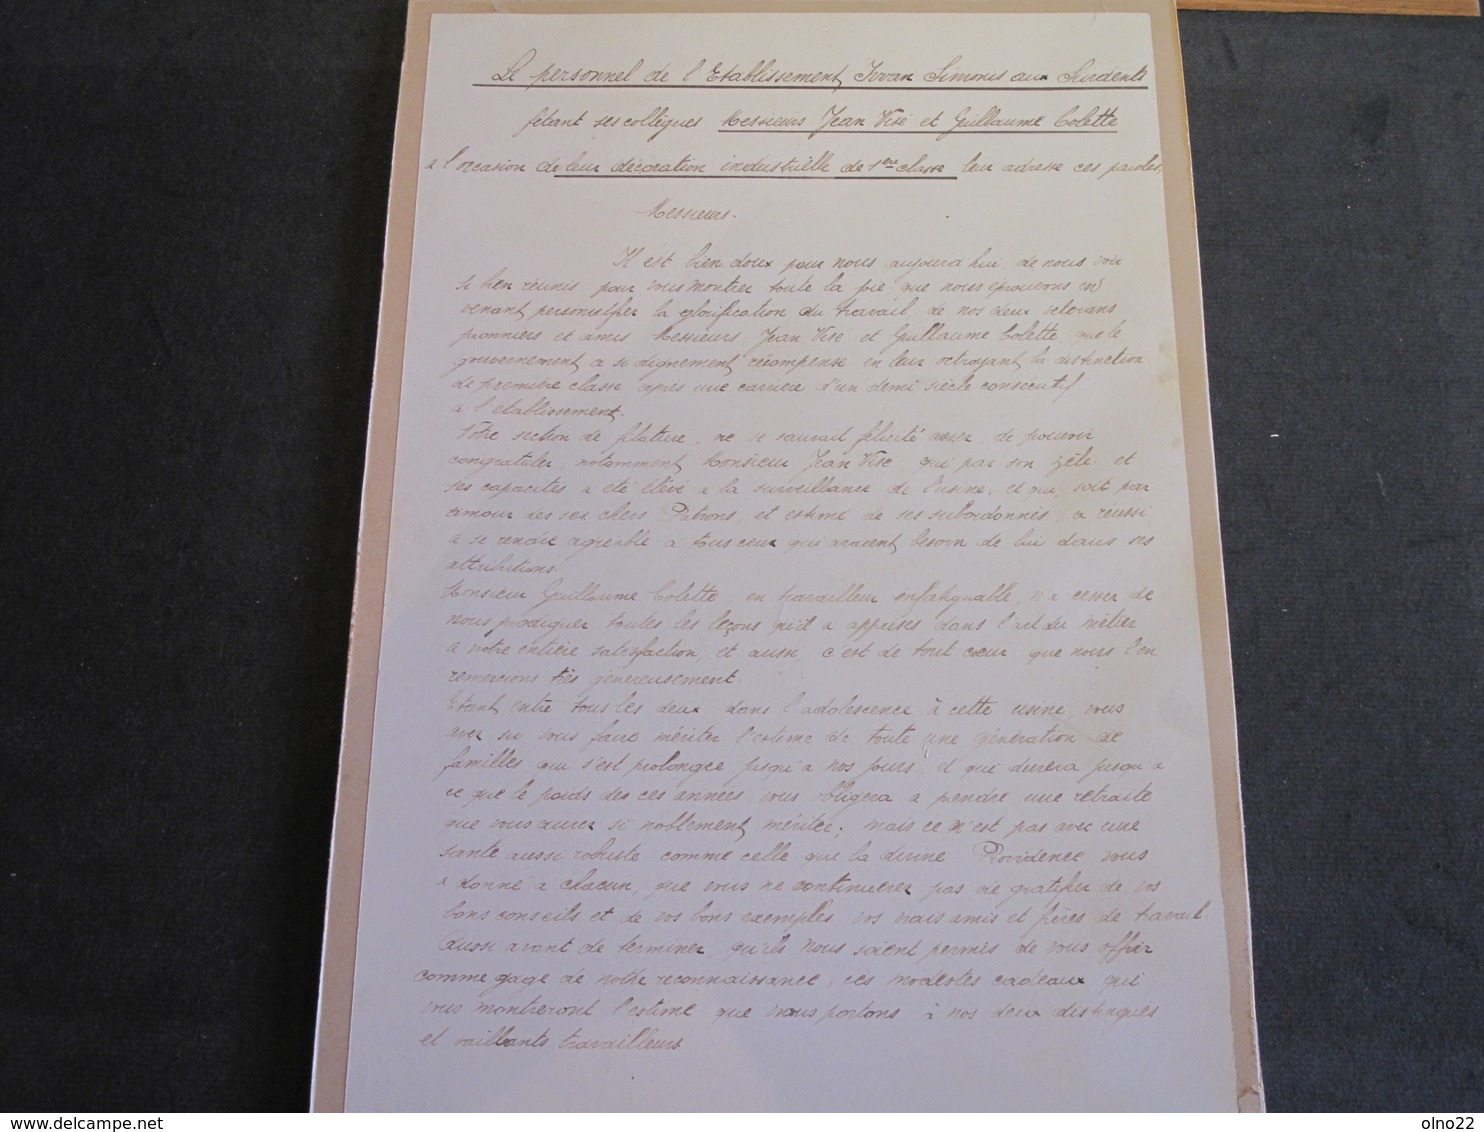 Le personnel de l'Etablissement Iwan Simonis aux Surdents
fêtant ses collègues Messieurs Jean Visé et Guillaume Colette
a l'occasion de leur décoration industrielle de 1ère classe leur adresse ces paroles.
Messieurs.
Il est bien doux pour nous aujourd'hui, de nous voir
si bien réunis pour vous montrer toute la joie que nous éprouvons en
venant personnifier la glorification du travail de nos deux vétérans
pionniers et amis Messieurs Jean Visé et Guillaume Colette, que le
gouvernement a si dignement récompensé en leur octroyant la distinction
de première classe après une carrière d'un demi siècle consécutif
à l'établissement.
Notre section de filature, ne se saurait félicité assez de pouvoir
congratuler, notamment Monsieur Jean Visé, qui par son zèle et
ses capacités a été élevé a la surveillance de l'usine, et qui, soit par
amour des ses chers Patrons, et estimé de ses subordonnés, a réussi
a se rendre agréable a tous ceux qui avaient besoin de lui dans ses
attributions.
Monsieur Guillaume Colette, en travailleur infatiguable, n'a cesser de
nous prodiguer toutes les leçons qu'il a apprises dans l'art du métier
a notre entière satisfaction, et aussi c'est de tout cœur que nous l'en
remercions très généreusement.
Etant entré tous les deux dans l'adolescence à cette usine, vous
avez su vous faire mériter l'estime de toute une génération de
familles qui s'est prolongée jusqu'a nos jours, et qui durera jusqu'a
ce que le poids des ces années vous obligera a prendre une retraite
que vous aurez si noblement méritée; mais ce n'est pas avec une
santé aussi robuste comme celle que la divine Providence vous
a donné a chacun, que vous ne continuerez pas de gratifier de vos
bons conseils et de vos bons exemples vos vrais amis et frères de travail
Aussi avant de terminer, qu'ils nous soient permis de vous offrir
comme gage de notre reconnaissance, ces modestes cadeaux qui
vous montreront l'estime que nous portons à nos deux distingués
et vaillants travailleurs
olno22